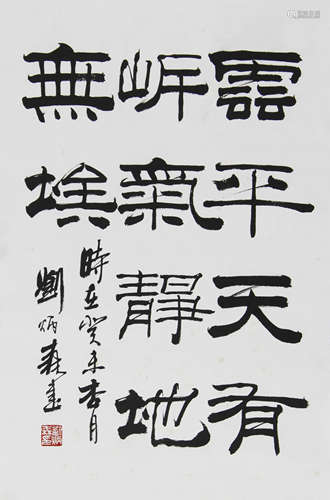 雲平天有
岓氣靜地
無埃
時在癸未杏月
劉炳森書